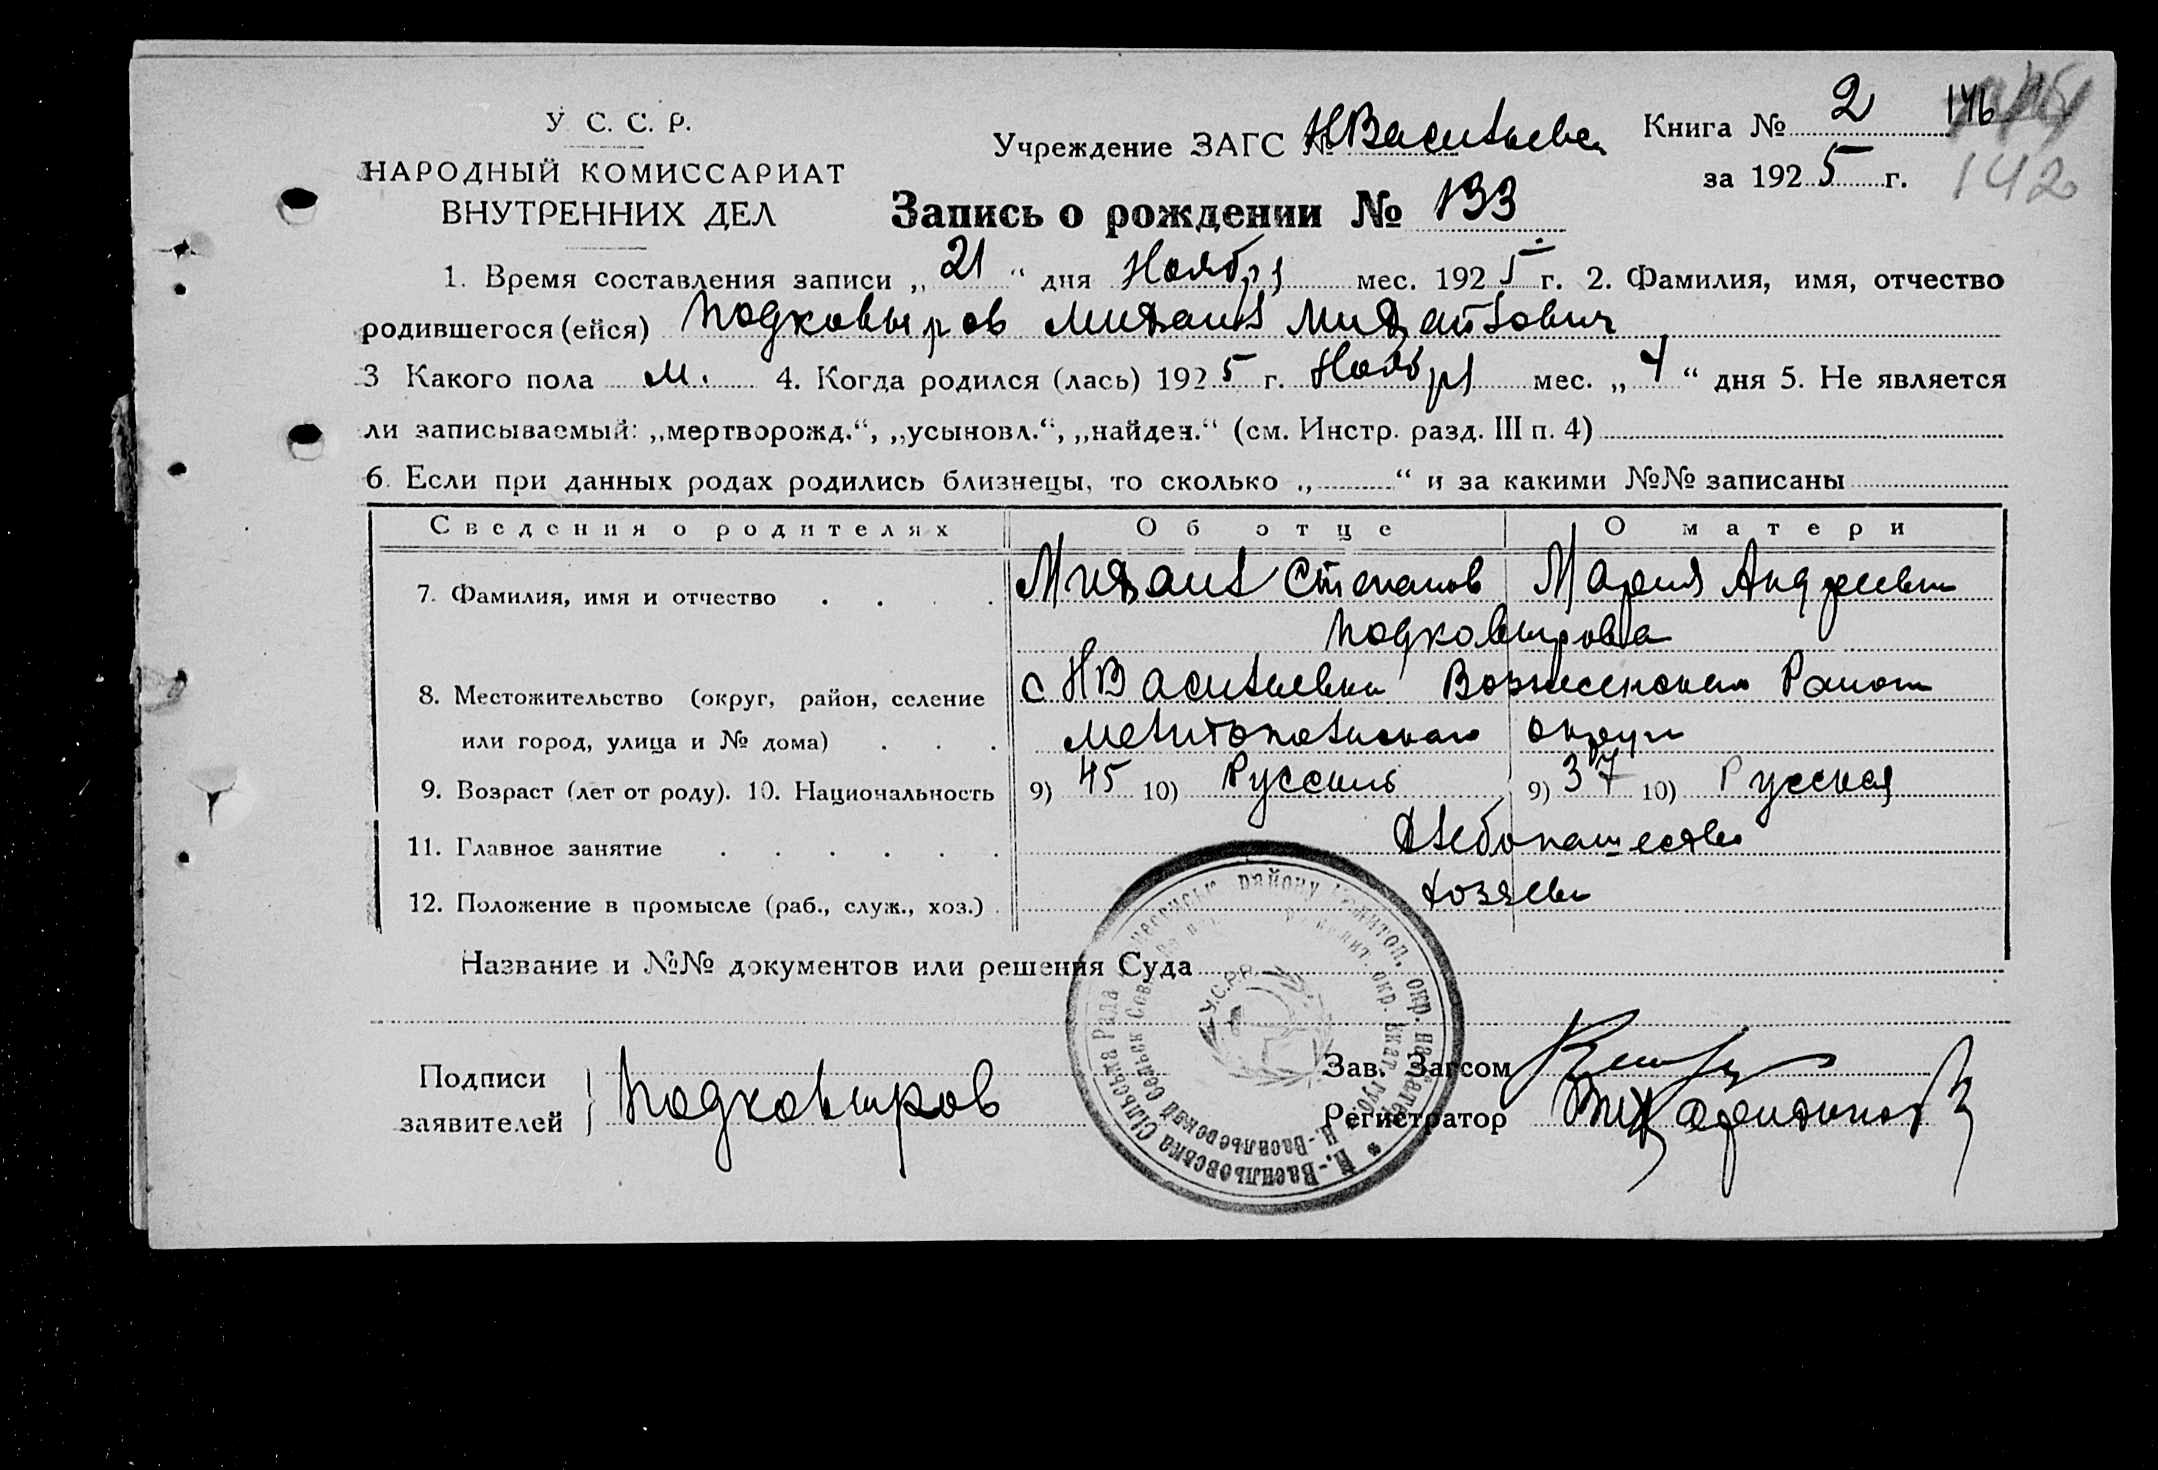 У. С. С. Р.
НАРОДНЫЙ КОМИССАРИАТ
ВНУТРЕННИХ ДЕЛ
Учреждение ЗАГС № НВасильевка
Книга № 2 146
за 1925 г. 142
Запись о рождении № 133
1. Время составления записи „ 21 “ дня Ноября мес. 1925 г. 2. Фамилия, имя, отчество
родившегося (ейся) Подковыров Михаил Михайлович
3 Какого пола м. 4. Когда родился (лась) 1925 г. Ноября мес. „ 4 “ дня 5. Не является
ли записываемый: „мертворожд.“, „усыновл.“, „найден.“ (см. Инстр. разд. III п. 4)
6. Если при данных родах родились близнецы, то сколько „ “ и за какими №№ записаны
Сведения о родителях Об отце О матери
7. Фамилия, имя и отчество Михаил Степанов Мария Андреевна
Подковырова
8. Местожительство (округ, район, селение с. НВасильевки Вознесенского Района
или город, улица и № дома) Мелитопольского округа
9. Возраст (лет от роду). 10. Национальность 9) 45 10) Русский 9) 37 10) Русская
11. Главное занятие Хлебопашество
12. Положение в промысле (раб., служ., хоз.) хозяева
Название и №№ документов или решения Суда
Подписи
заявителей } Подковыров
Зав. Загсом
Регистратор
Н.-Васильовська Сільська Рада району Мелітоп. окр. на
Н.-Васильевский Сельск. Сов. Мелит. окр. Екат. губ.
У.С.Р.Р.